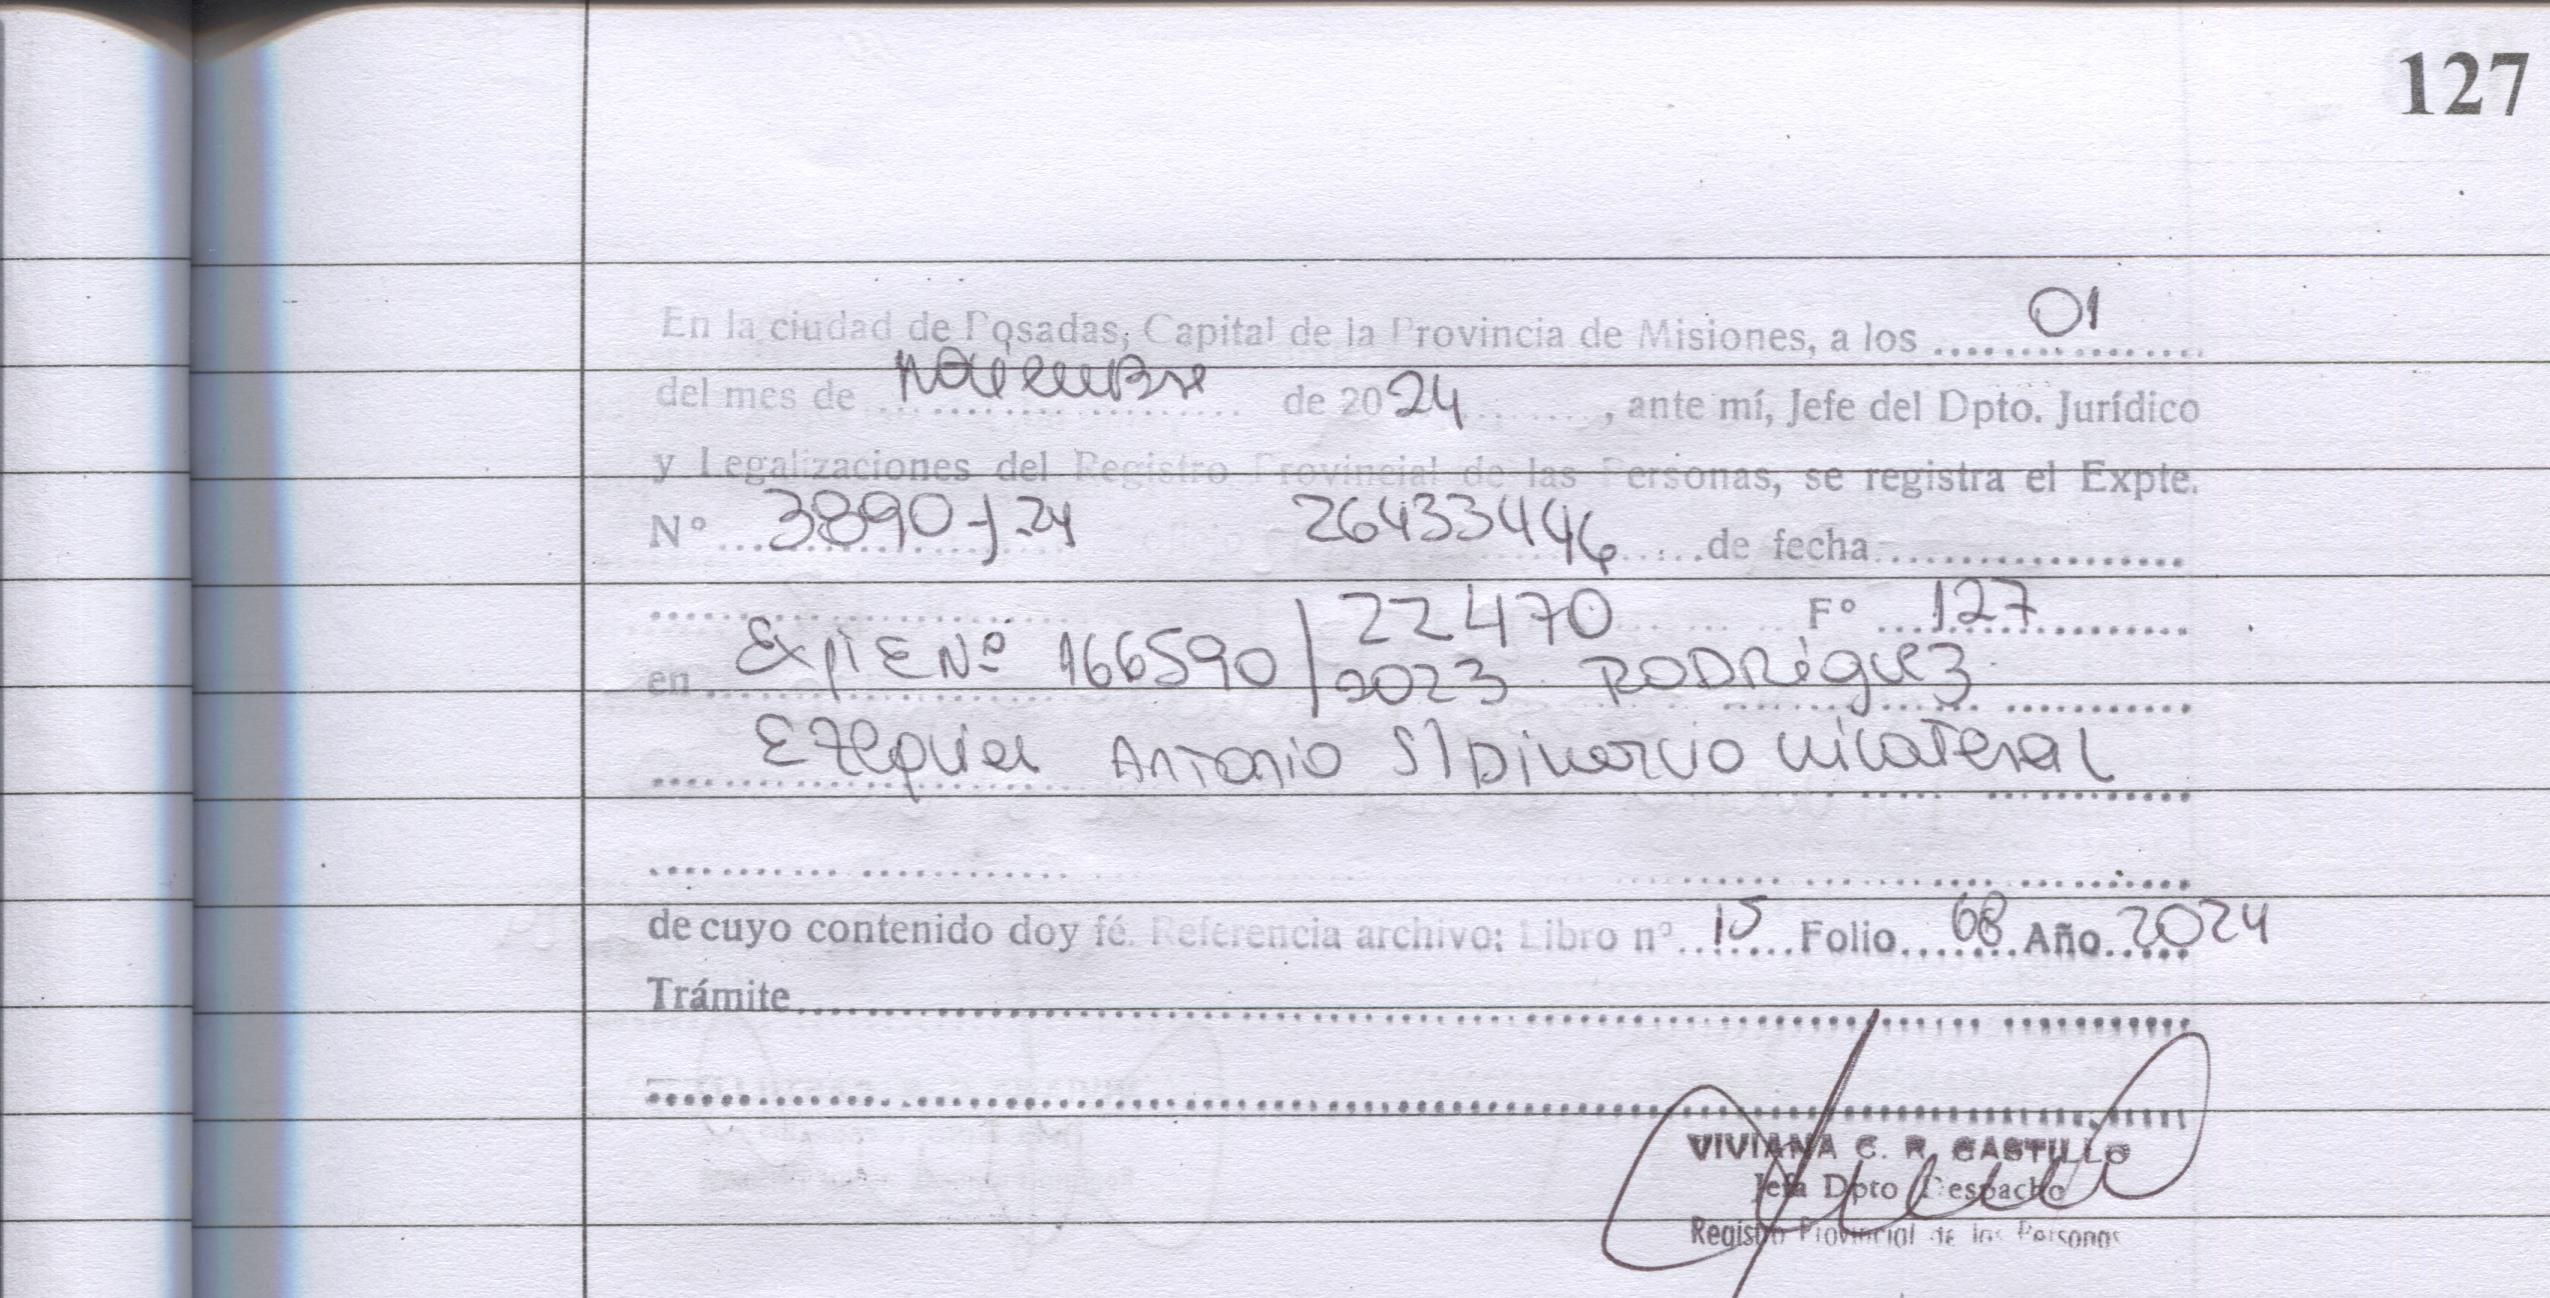 127
En la ciudad de Posadas, Capital de la Provincia de Misiones, a los 01
del mes de Noviembre de 2024, ante mí, Jefe del Dpto. Jurídico
y Legalizaciones del Registro Provincial de las Personas, se registra el Expte.
Nº 3890-J-24 26433446 de fecha
22470 Fº 127
en ExpTE Nº 166590/2023 RODRiguez
Ezequiel Antonio S/Divorcio unilateral
de cuyo contenido doy fé. Referencia archivo: Libro nº 15 Folio 68 Año 2024
Trámite
VIVIANA C. R. CASTILLO
Jefa Dpto Despacho
Registro Provincial de las Personas